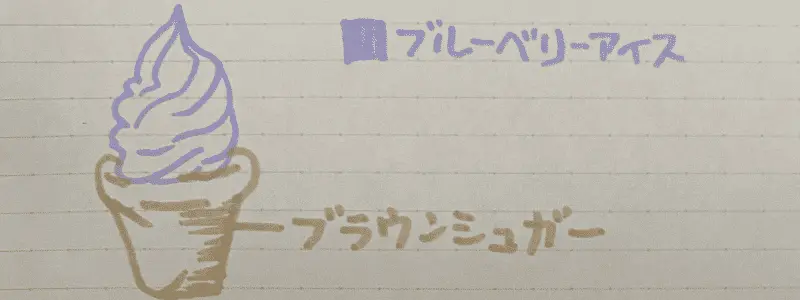 ブルーベリーアイス
ブラウンシュガー